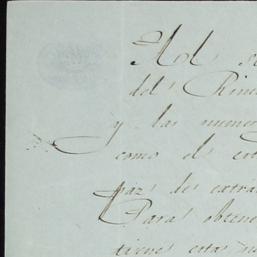 del Rinc
y las nume
como el est
paz de extra
Para obtene
tiene esta